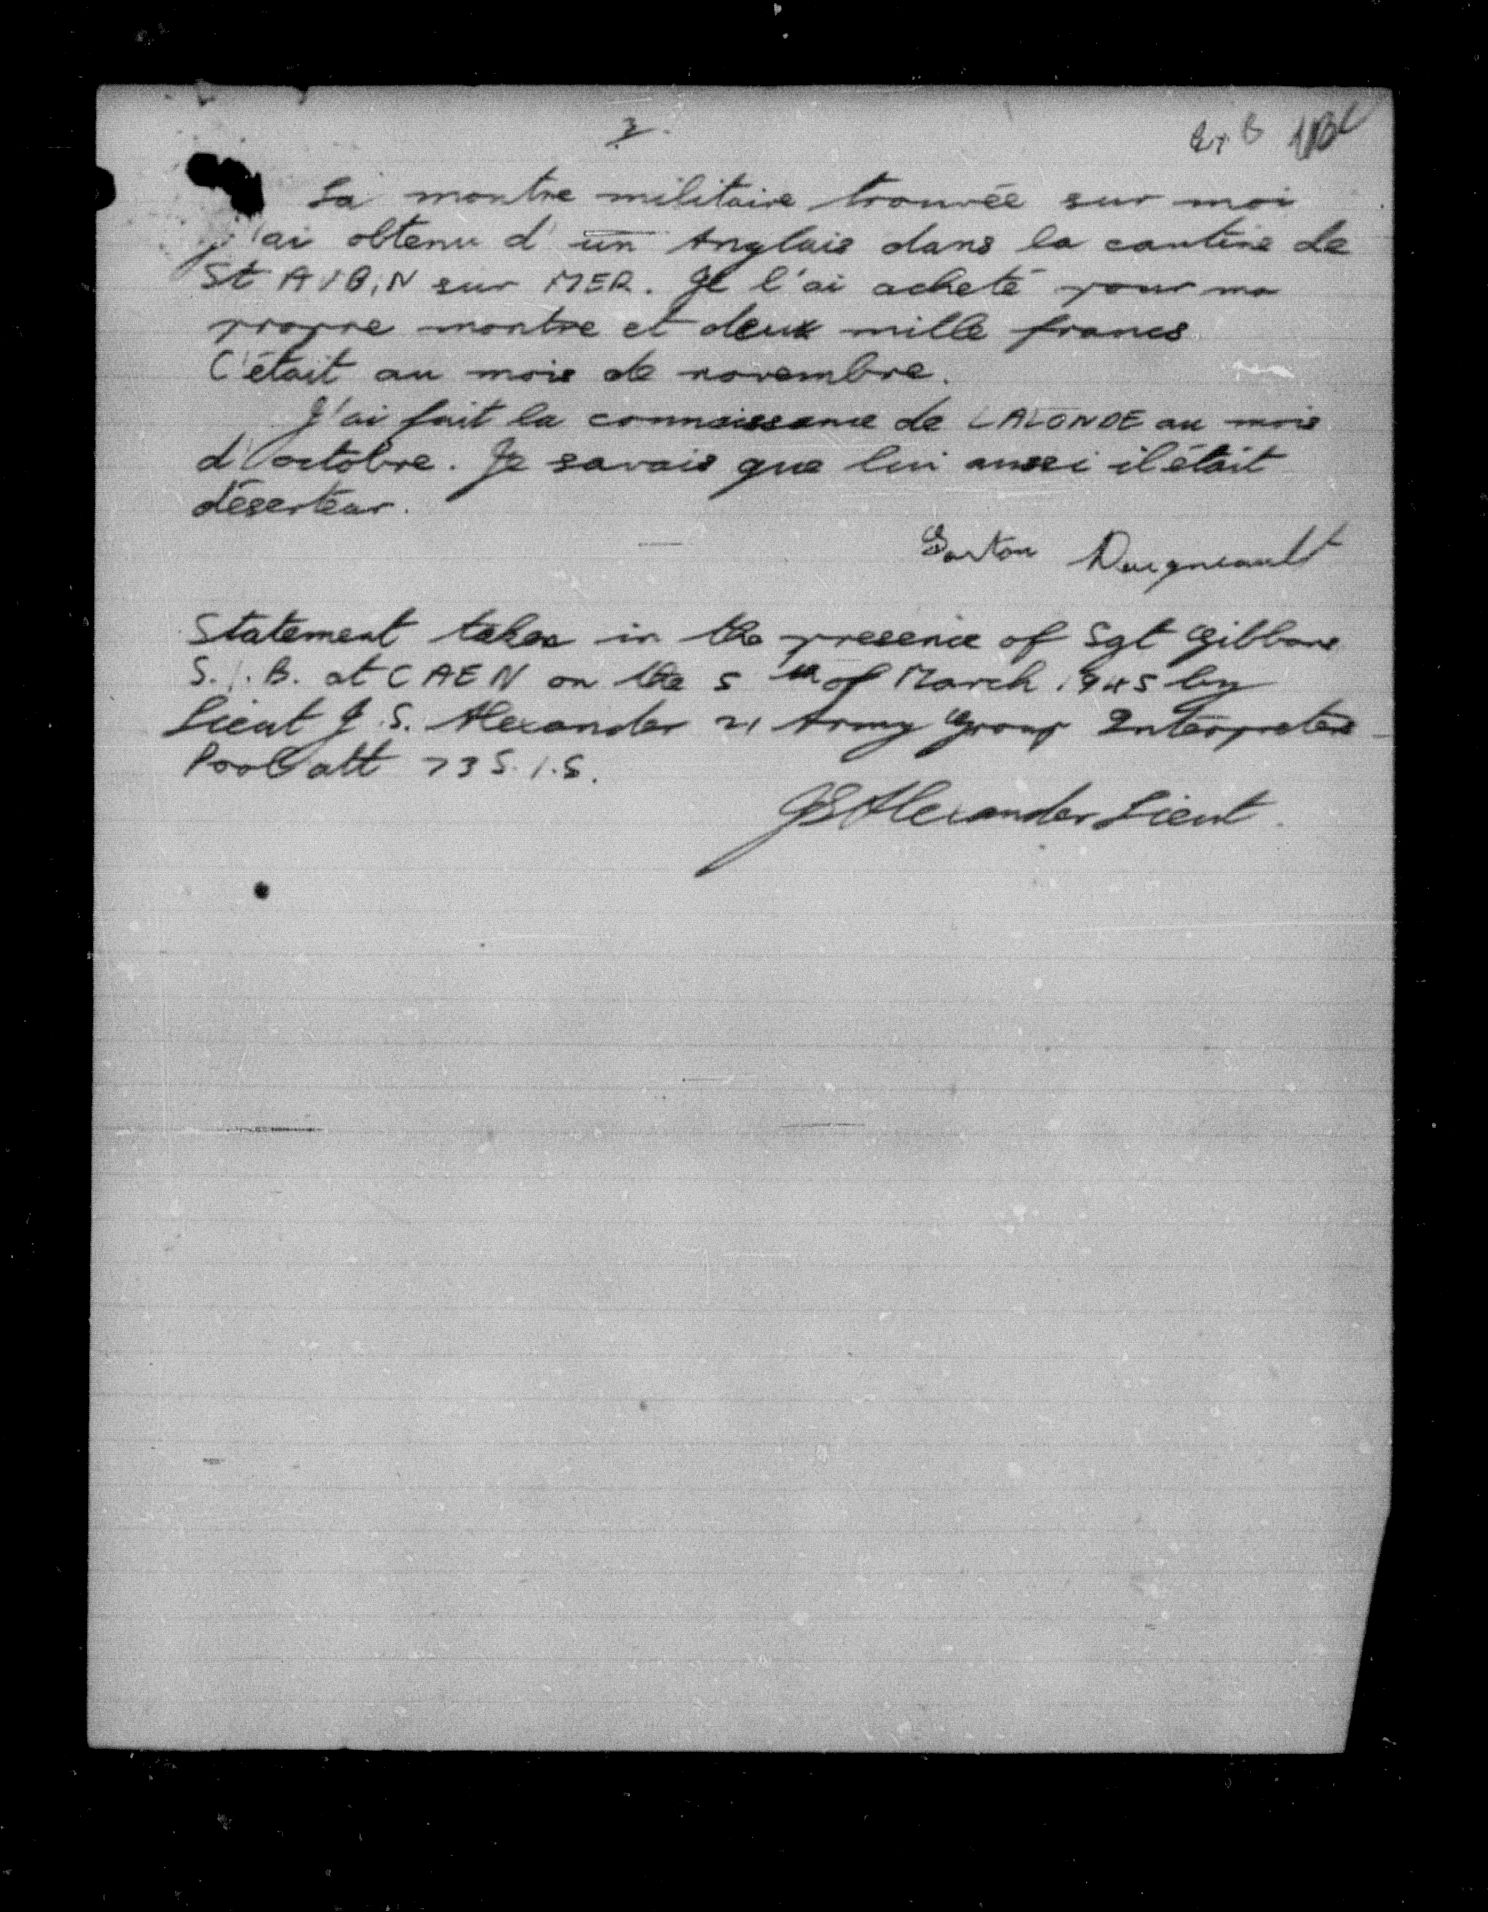 3.
Ex. B
La montre militaire trouvée sur moi
j'ai obtenu d'un Anglais dans la cantine de
St AUBIN sur MER. Je l'ai acheté pour ma
propre montre et deux mille francs
C'était au mois de novembre.
J'ai fait la connaissance de LALONDE au mois
d'octobre. Je savais que lui aussi il était
déserteur.
Gaston Daigneault
Statement taken in the presence of Sgt Gibbons
S.I.B. at CAEN on the 5th of March 1945 by
Lieut J.S. Alexander 21 Army Group Interpreters
Pool att 73 S.I.S.
JSAlexander Lieut.